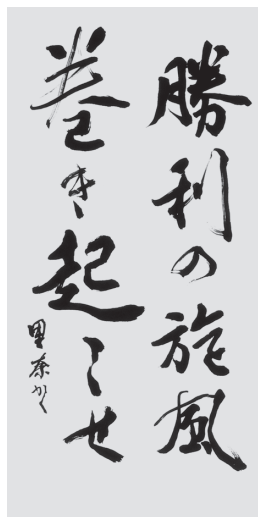 勝利の旋風
巻き起こせ
里奈かく